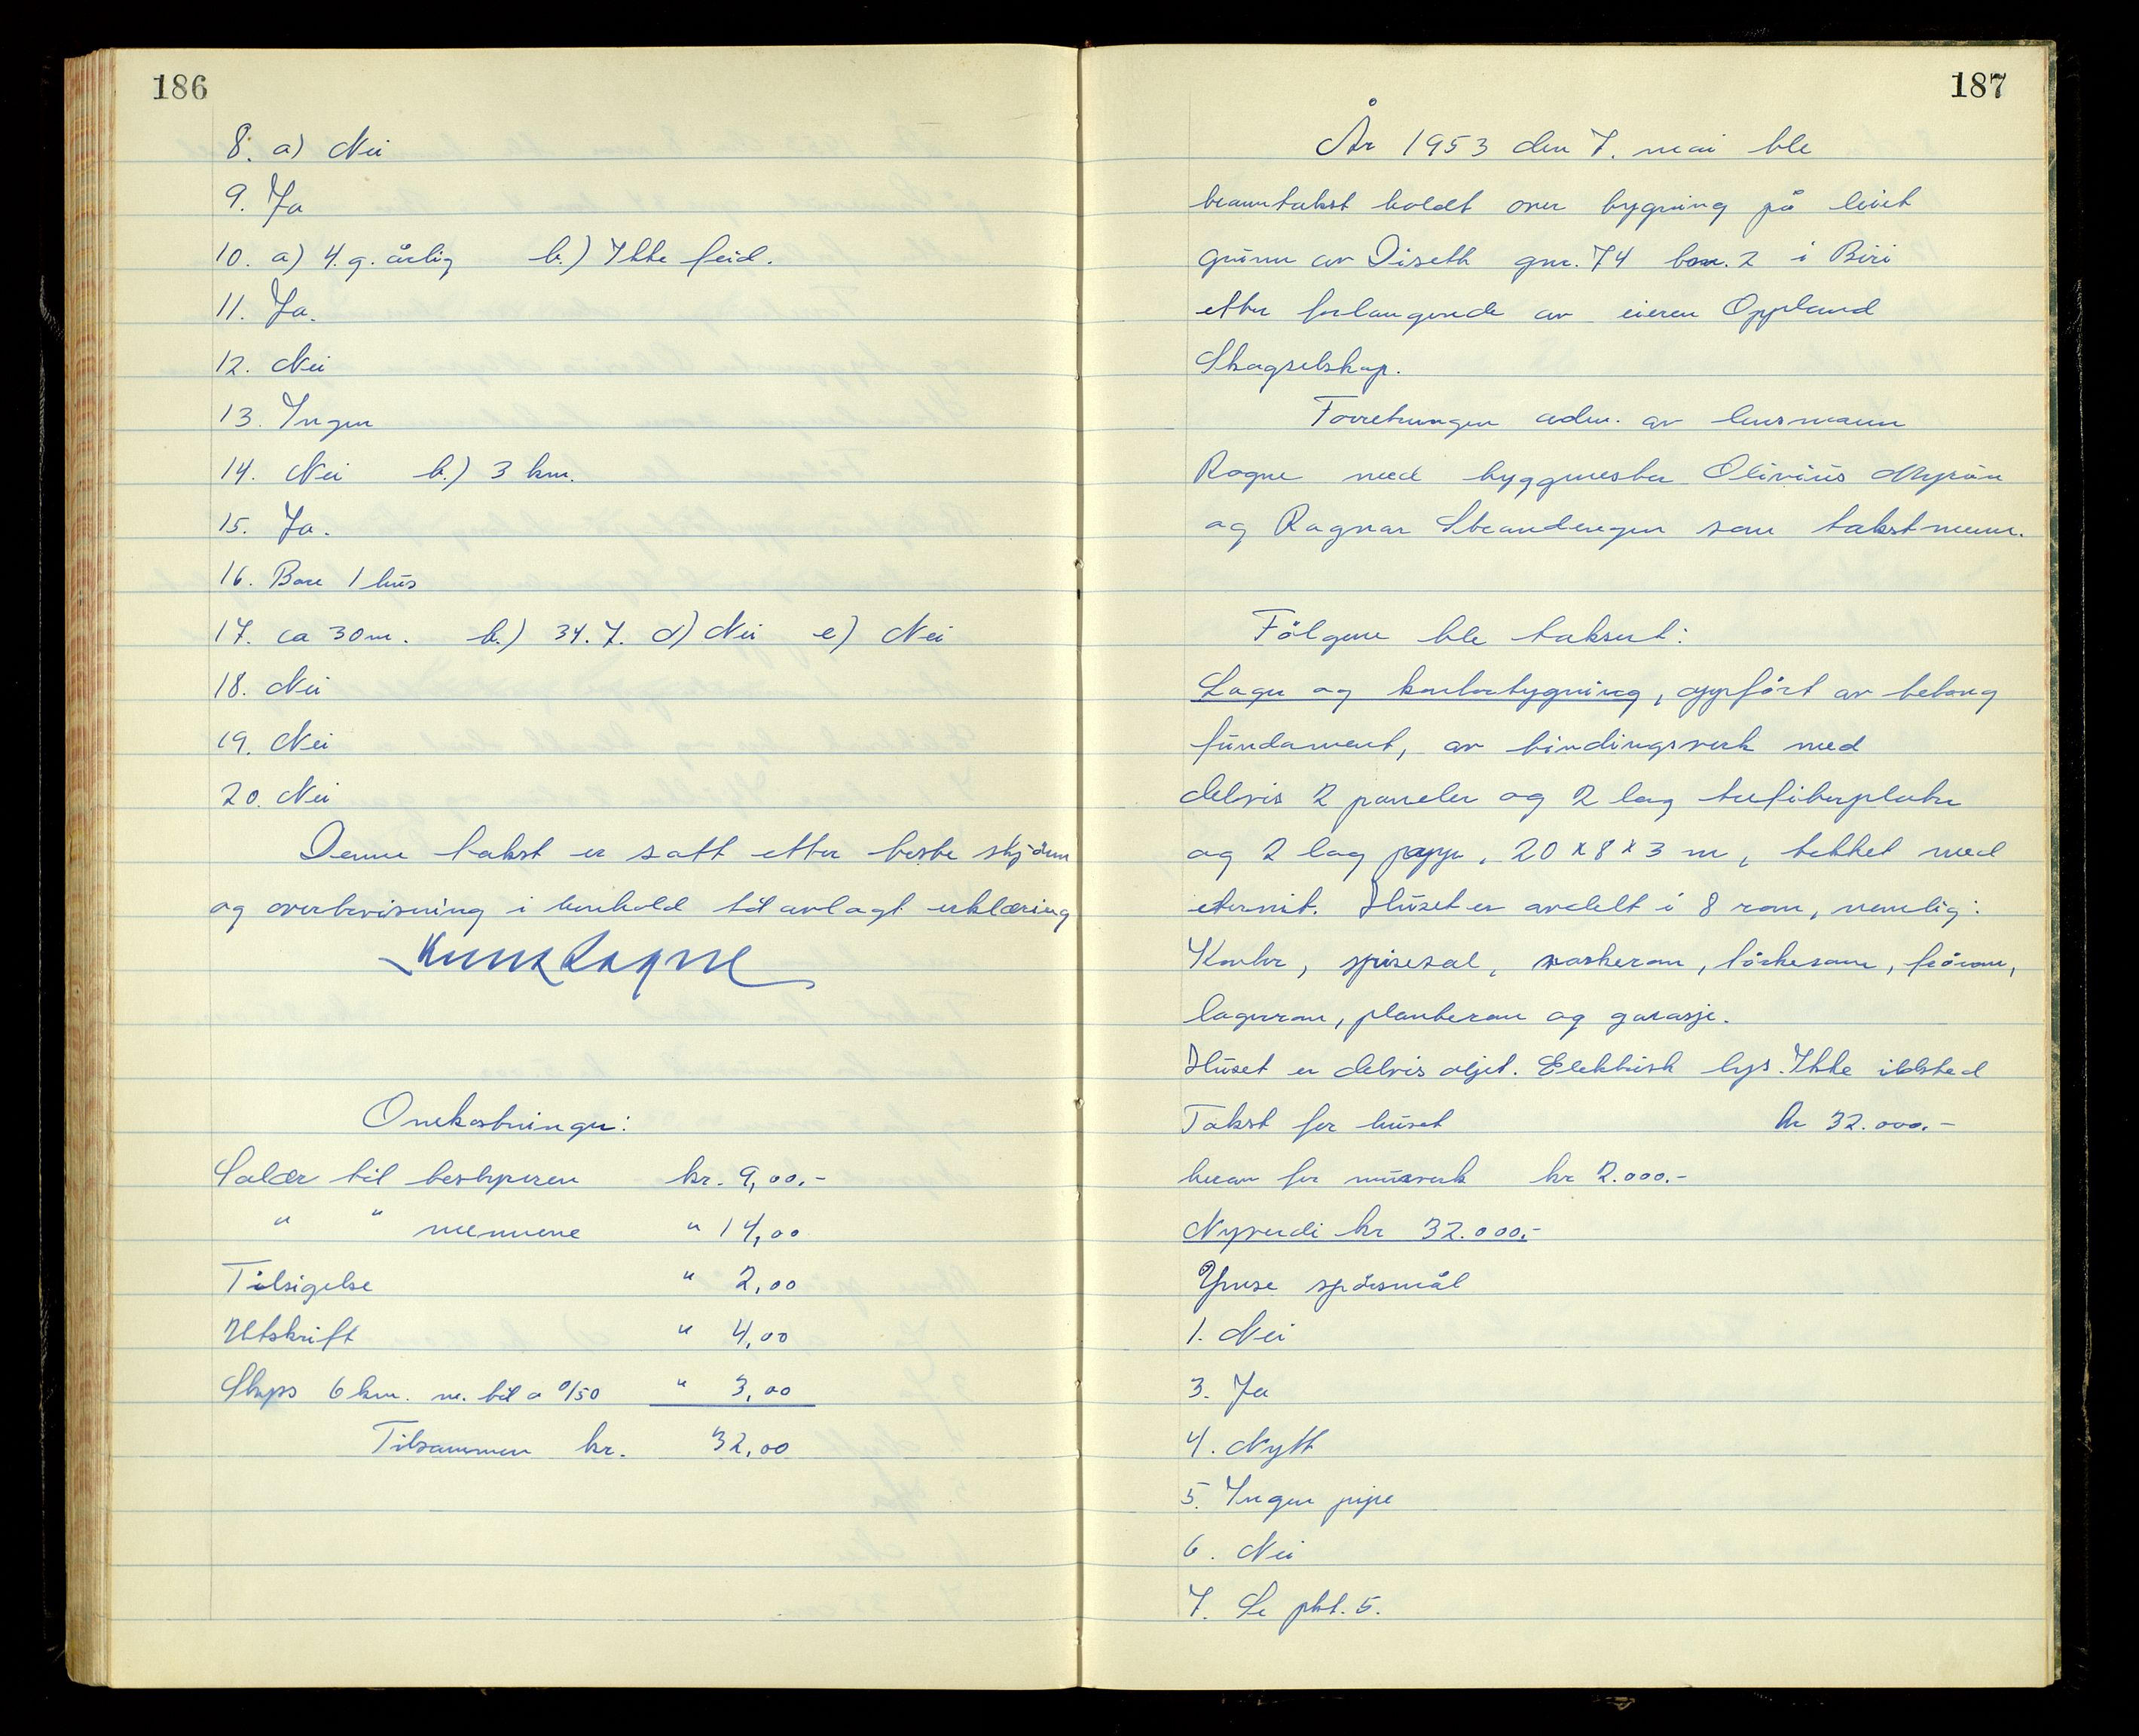 186
8. a) Nei
9. Ja
10. a) 4. g. årlig b.) Ikke feid.
11. Ja.
12. Nei
13. Ingen
14. Nei b.) 3 km.
15. Ja.
16. Bare 1 hus
17. ca 30 m. b.) 34.7. d) Nei e) Nei
18. Nei
19. Nei
20. Nei
Denne takst er satt etter beste skjönn
og overbevisning i henhold til avlagt erklæring
Omkostninger:
Salær til bestyreren kr. 9,00.-
" " mennene " 14,00
Tilsigelse " 2,00
Utskrift " 4,00
Skyss 6 km. m. bil a 0/50 " 3,00
Tilsammen kr. 32,00
187
År 1953 den 7. mai ble
branntakst holdt over bygning på leiet
grunn av Diseth gnr. 74 bnr. 2 i Biri
etter forlangende av eieren Oppland
Skogselskap.
Forretningen adm. av lensmann
Rogne med byggmester Olivius Myrön
og Ragnar Strandengen som takstmenn.
Fölgene ble taksert:
Lager og kontorbygning, oppfört av betong
fundament, av bindingsverk med
delvis 2 paneler og 2 lag trefiberplater
og 2 lag papp, 20 x 8 x 3 m, tekket med
eternit. Huset er avdelt i 8 rom, nemlig:
Kontor, spisesal, vaskerom, törkerom, frörom,
lagerrom, planterom og garasje.
Huset er delvis oljet. Elektrisk lys. Ikke ildsted
Takst for huset kr 32.000.-
herav for murverk kr 2.000.-
Nyverdi kr 32.000.-
Ymse spörsmål
1. Nei
3. Ja
4. Nytt
5. Ingen pipe
6. Nei
7. Se pkt. 5.